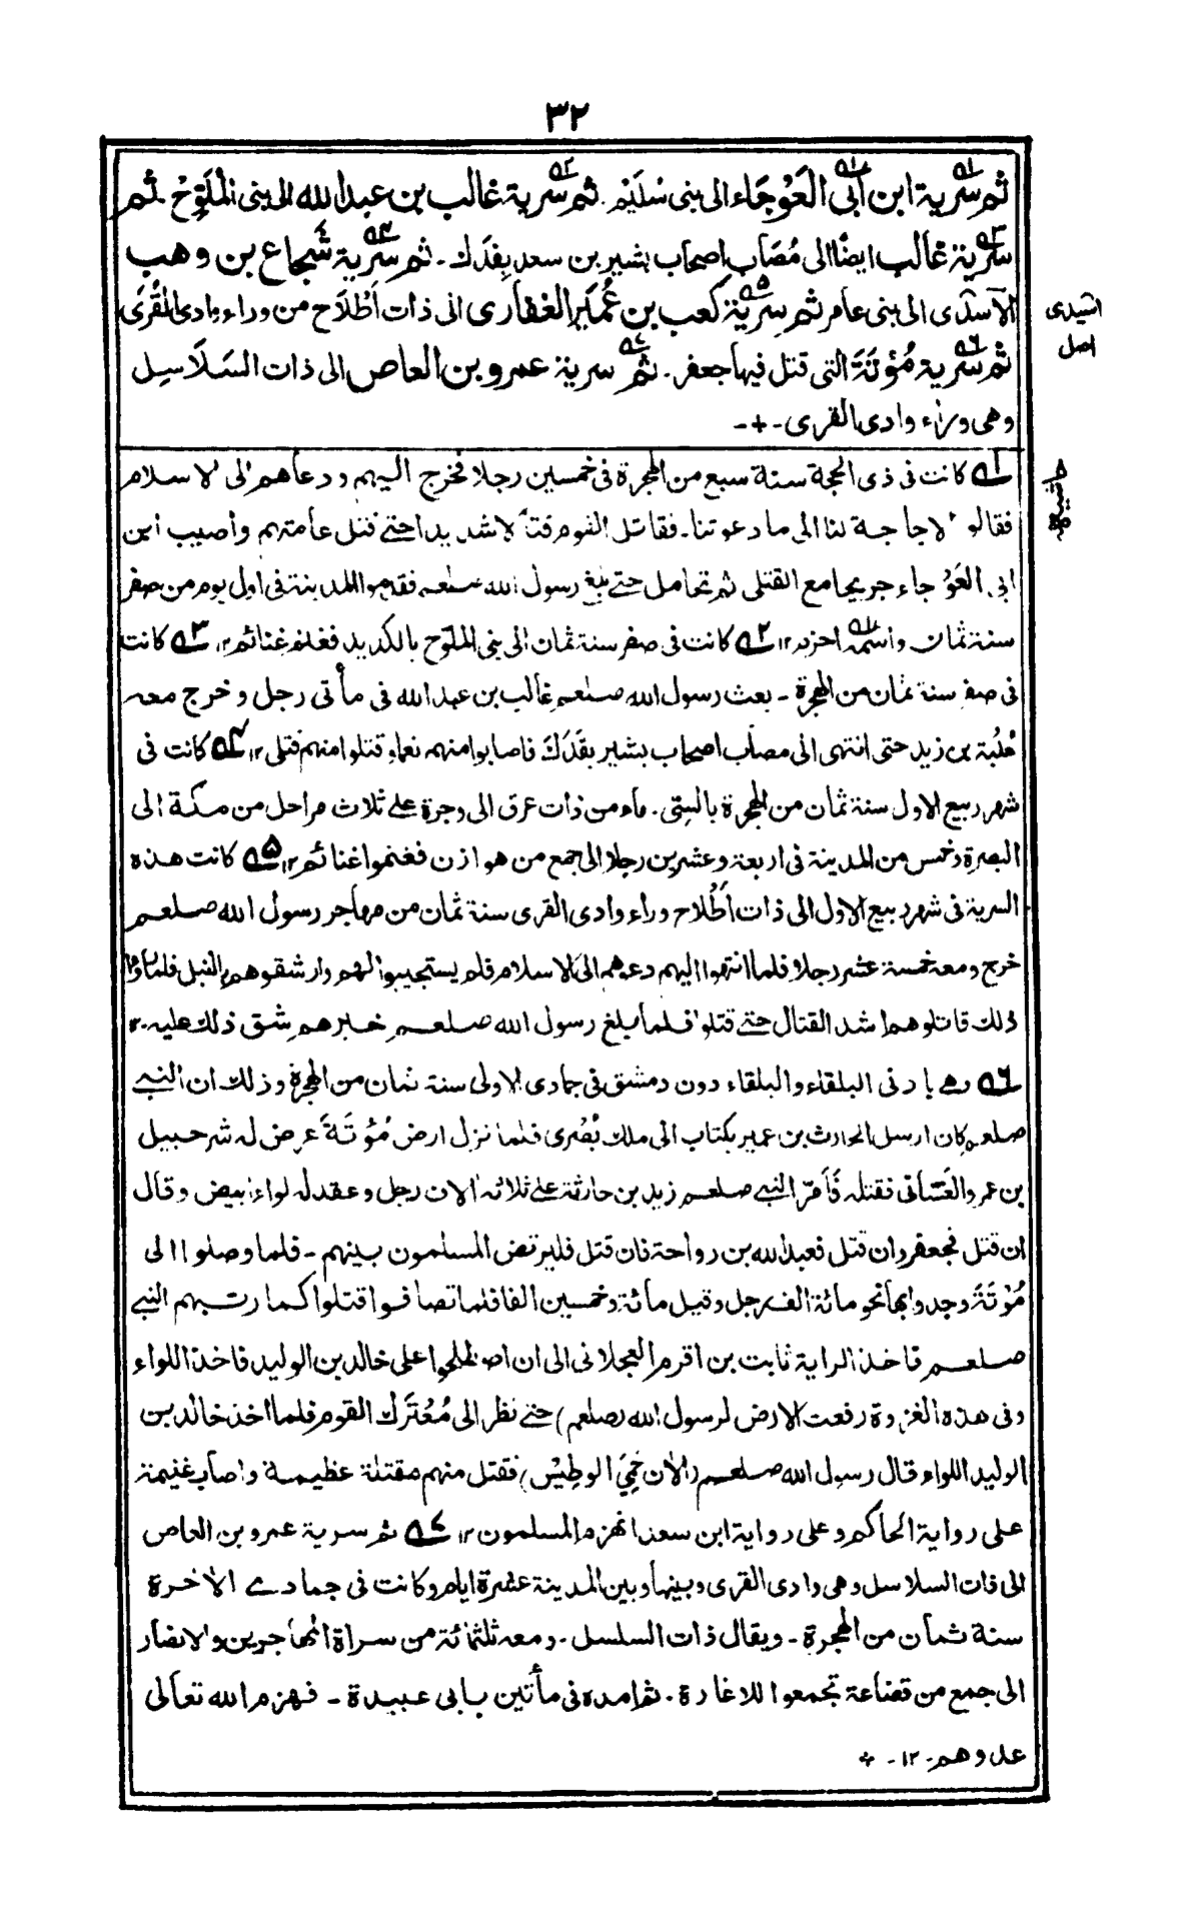 ٣٢
ثم سرية ابن أبى العَوْجَاء الى بنى سُلَيْم. ثم سرية غالب بن عبدالله الى بنى المُلَوِّحْ. ثم
سرية غالب ايضًا الى مُصَاب اصحاب بشير بن سعد بِفَدَك. ثم سرية شُجاع بن وهب
الآسَدى الى بنى عامر ثم سرية كعب بن عُمَير الغفارى الى ذات اَطْلَاح من وراء وادى القُرَى
ثم سرية مُؤتَةَ التى قتل فيها جعفر. ثم سرية عمرو بن العاص الى ذات السَلَاسِل
وهى وراء وادى القرى-+-
اصل
حاشيه
ك١ كانت فى ذى الحجة سنة سبع من الهجرة فى خمسين رجلا فخرج اليهم ودعاهم الى الاسلام
فقالو لاحاجة لنا الى ما دعوتنا. فقاتل القوم قتالا شديدا حتى قتل عامتهم وأصيب ابن
ابى العَوْجاء جريحا مع القتلى ثم تحامل حتى بلغ رسول الله صلعم فقدموا المدينة فى اول يوم من صفر
سنة ثمان واسمه اخزم ١٢ ك٢ كانت فى صفر سنة ثمان الى بنى الملوّح بالكديد فغنم غنائم ١٢ ك٣ كانت
فى صفر سنة ثمان من الهجرة - بعث رسول الله صلعم غالب بن عبد الله فى مأتى رجل وخرج معه
عُلْبة بن زيد حتى انتهى الى مصاب اصحاب بشير بفَدَكَ فاصابوا منهم نعما وقتلوا منهم قتلى ١٢ ك٤ كانت فى
شهر ربيع الاول سنة ثمان من الهجرة بالسِّى. ماء من ذات عرق الى وجرة على ثلاث مراحل من مكة الى
البصرة وخمس من المدينة فى اربعة وعشرين رجلا الى جمع من هوازن فغنموا غنائم ١٢ ك٥ كانت هذه
السرية فى شهر ربيع الاول الى ذات اَطْلاح وراء وادى القرى سنة ثمان من مهاجر رسول الله صلعم
خرج ومعه خمسة عشر رجلا فلما انتهوا اليهم دعوهم الى الاسلام فلم يستجيبوا لهم وارشقوهم بالنبل فلما رأوا
ذلك قاتلوهم اشد القتال حتى قتلوا فلما بلغ رسول الله صلعم خبرهم شق ذلك عليه.١٢
ك٦ هى بادنى البلقاء والبلقاء دون دمشق فى جمادى الاولى سنة ثمان من الهجرة وذلك ان النبى
صلعم كان ارسل الحارث بن عمير بكتاب الى ملك بُصْرى فلما نزل ارض مُؤتَةَ عرض له شرحبيل
بن عمرو الغسّانى فقتله فَأمّر النبى صلعم زيد بن حارثة على ثلاثه الاف رجل وعقد له لواء ابيض وقال
ان قتل فجعفر وان قتل فعبدالله بن رواحة فان قتل فليرتض المسلمون بينهم - فلما وصلوا الى
مُؤْتَةَ وجدوا بها نحو مائة الف رجل وقيل مائة وخمسين الفا فلما تصافوا قتلوا كما رتبهم النبى
صلعم فاخذ الراية ثابت بن اقرم العجلانى الى ان اصطلحوا على خالد بن الوليد فاخذ اللواء
وفى هذه الغزوة رفعت الارض لرسول الله (صلعم) حتى نظر الى مُعْتَرَك القوم فلما اخذ خالد بن
الوليد اللواء قال رسول الله صلعم (الان حَمِىَ الوطِيْس) فقتل منهم مقتلة عظيمة واصاب غنيمة
على رواية الحاكم وعلى رواية ابن سعد انهزم المسلمون ١٢ ك٧ ثم سرية عمرو بن العاص
الى ذات السلاسل وهى وادى القرى وبينها وبين المدينة عشرة ايام وكانت فى جمادى الاخرة
سنة ثمان من الهجرة - ويقال ذات السلسل - ومعه ثلثمائة من سراة المهاجرين والانصار
الى جمع من قضاعة تجمعوا للاغارة. ثم امده فى مأتين بابى عبيدة - فهزم الله تعالى
عدوهم -١٢-+